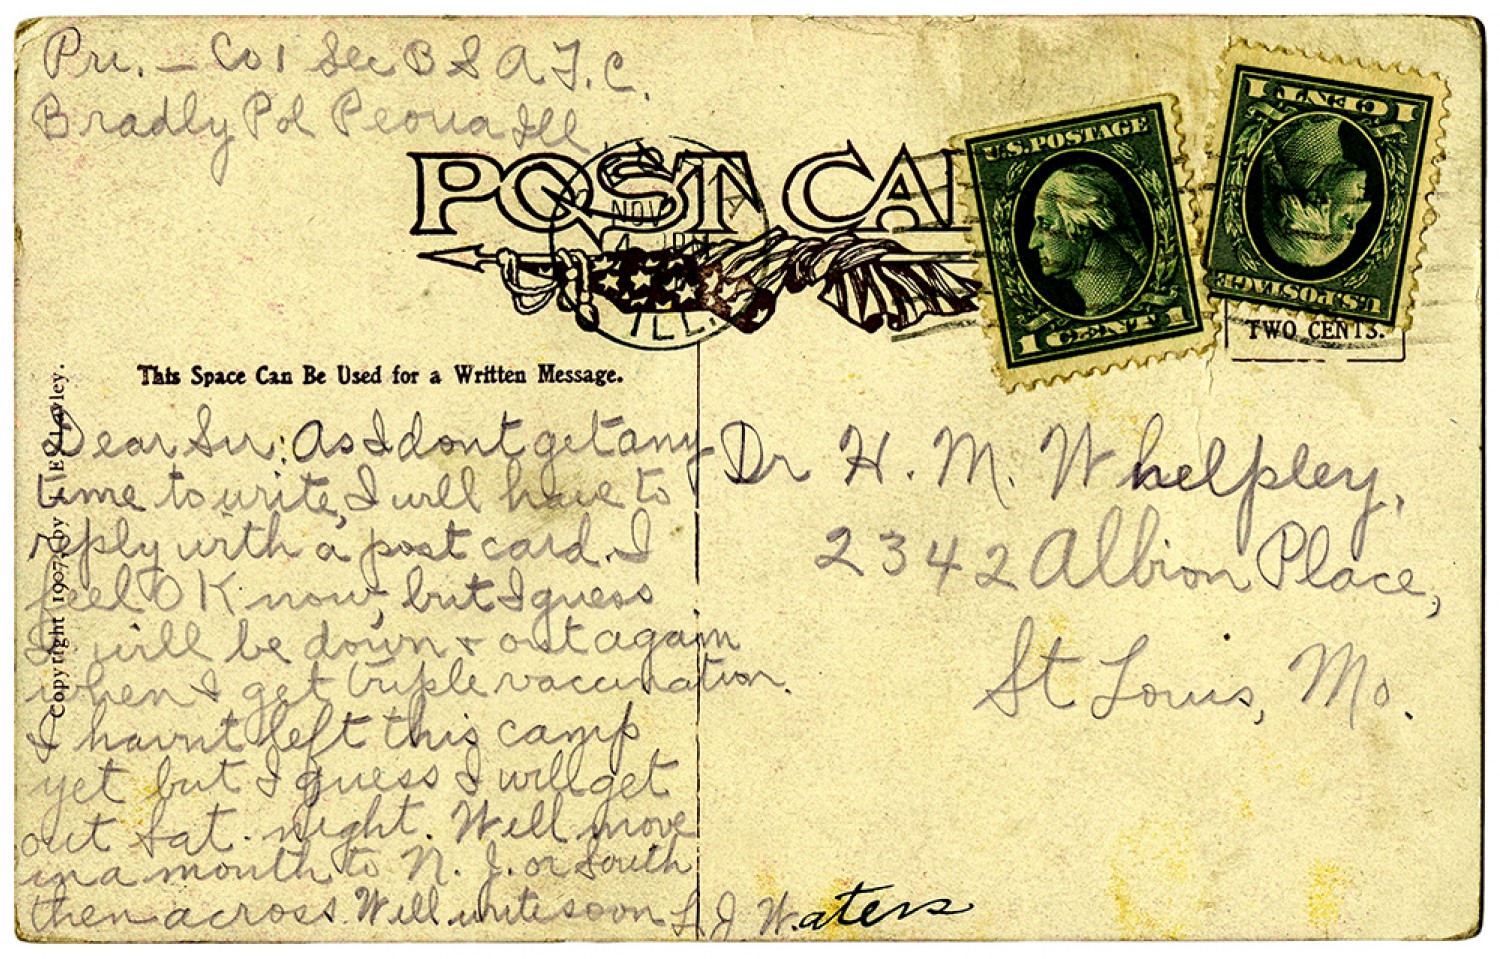 Pri. - Co 1 Sec B S A T. C.
Bradly Pol Peoria Ill
POST CAR
NOV
4 PM
ILL.
U.S. POSTAGE
1 CENT 1
U.S. POSTAGE
1 CENT 1
TWO CENTS.
This Space Can Be Used for a Written Message.
Copyright 1907, by
Dear Sir: As I dont get any
time to write, I will have to
reply with a post card. I
feel OK now, but I guess
I will be down & out again
when I get triple vaccination.
I havn't left this camp
yet but I guess I will get
out Sat. night. Will move
in a month to N. J. or South
then across. Will write soon L J Waters
Dr H. M. Whelpley,
2342 Albion Place,
St Louis, Mo.